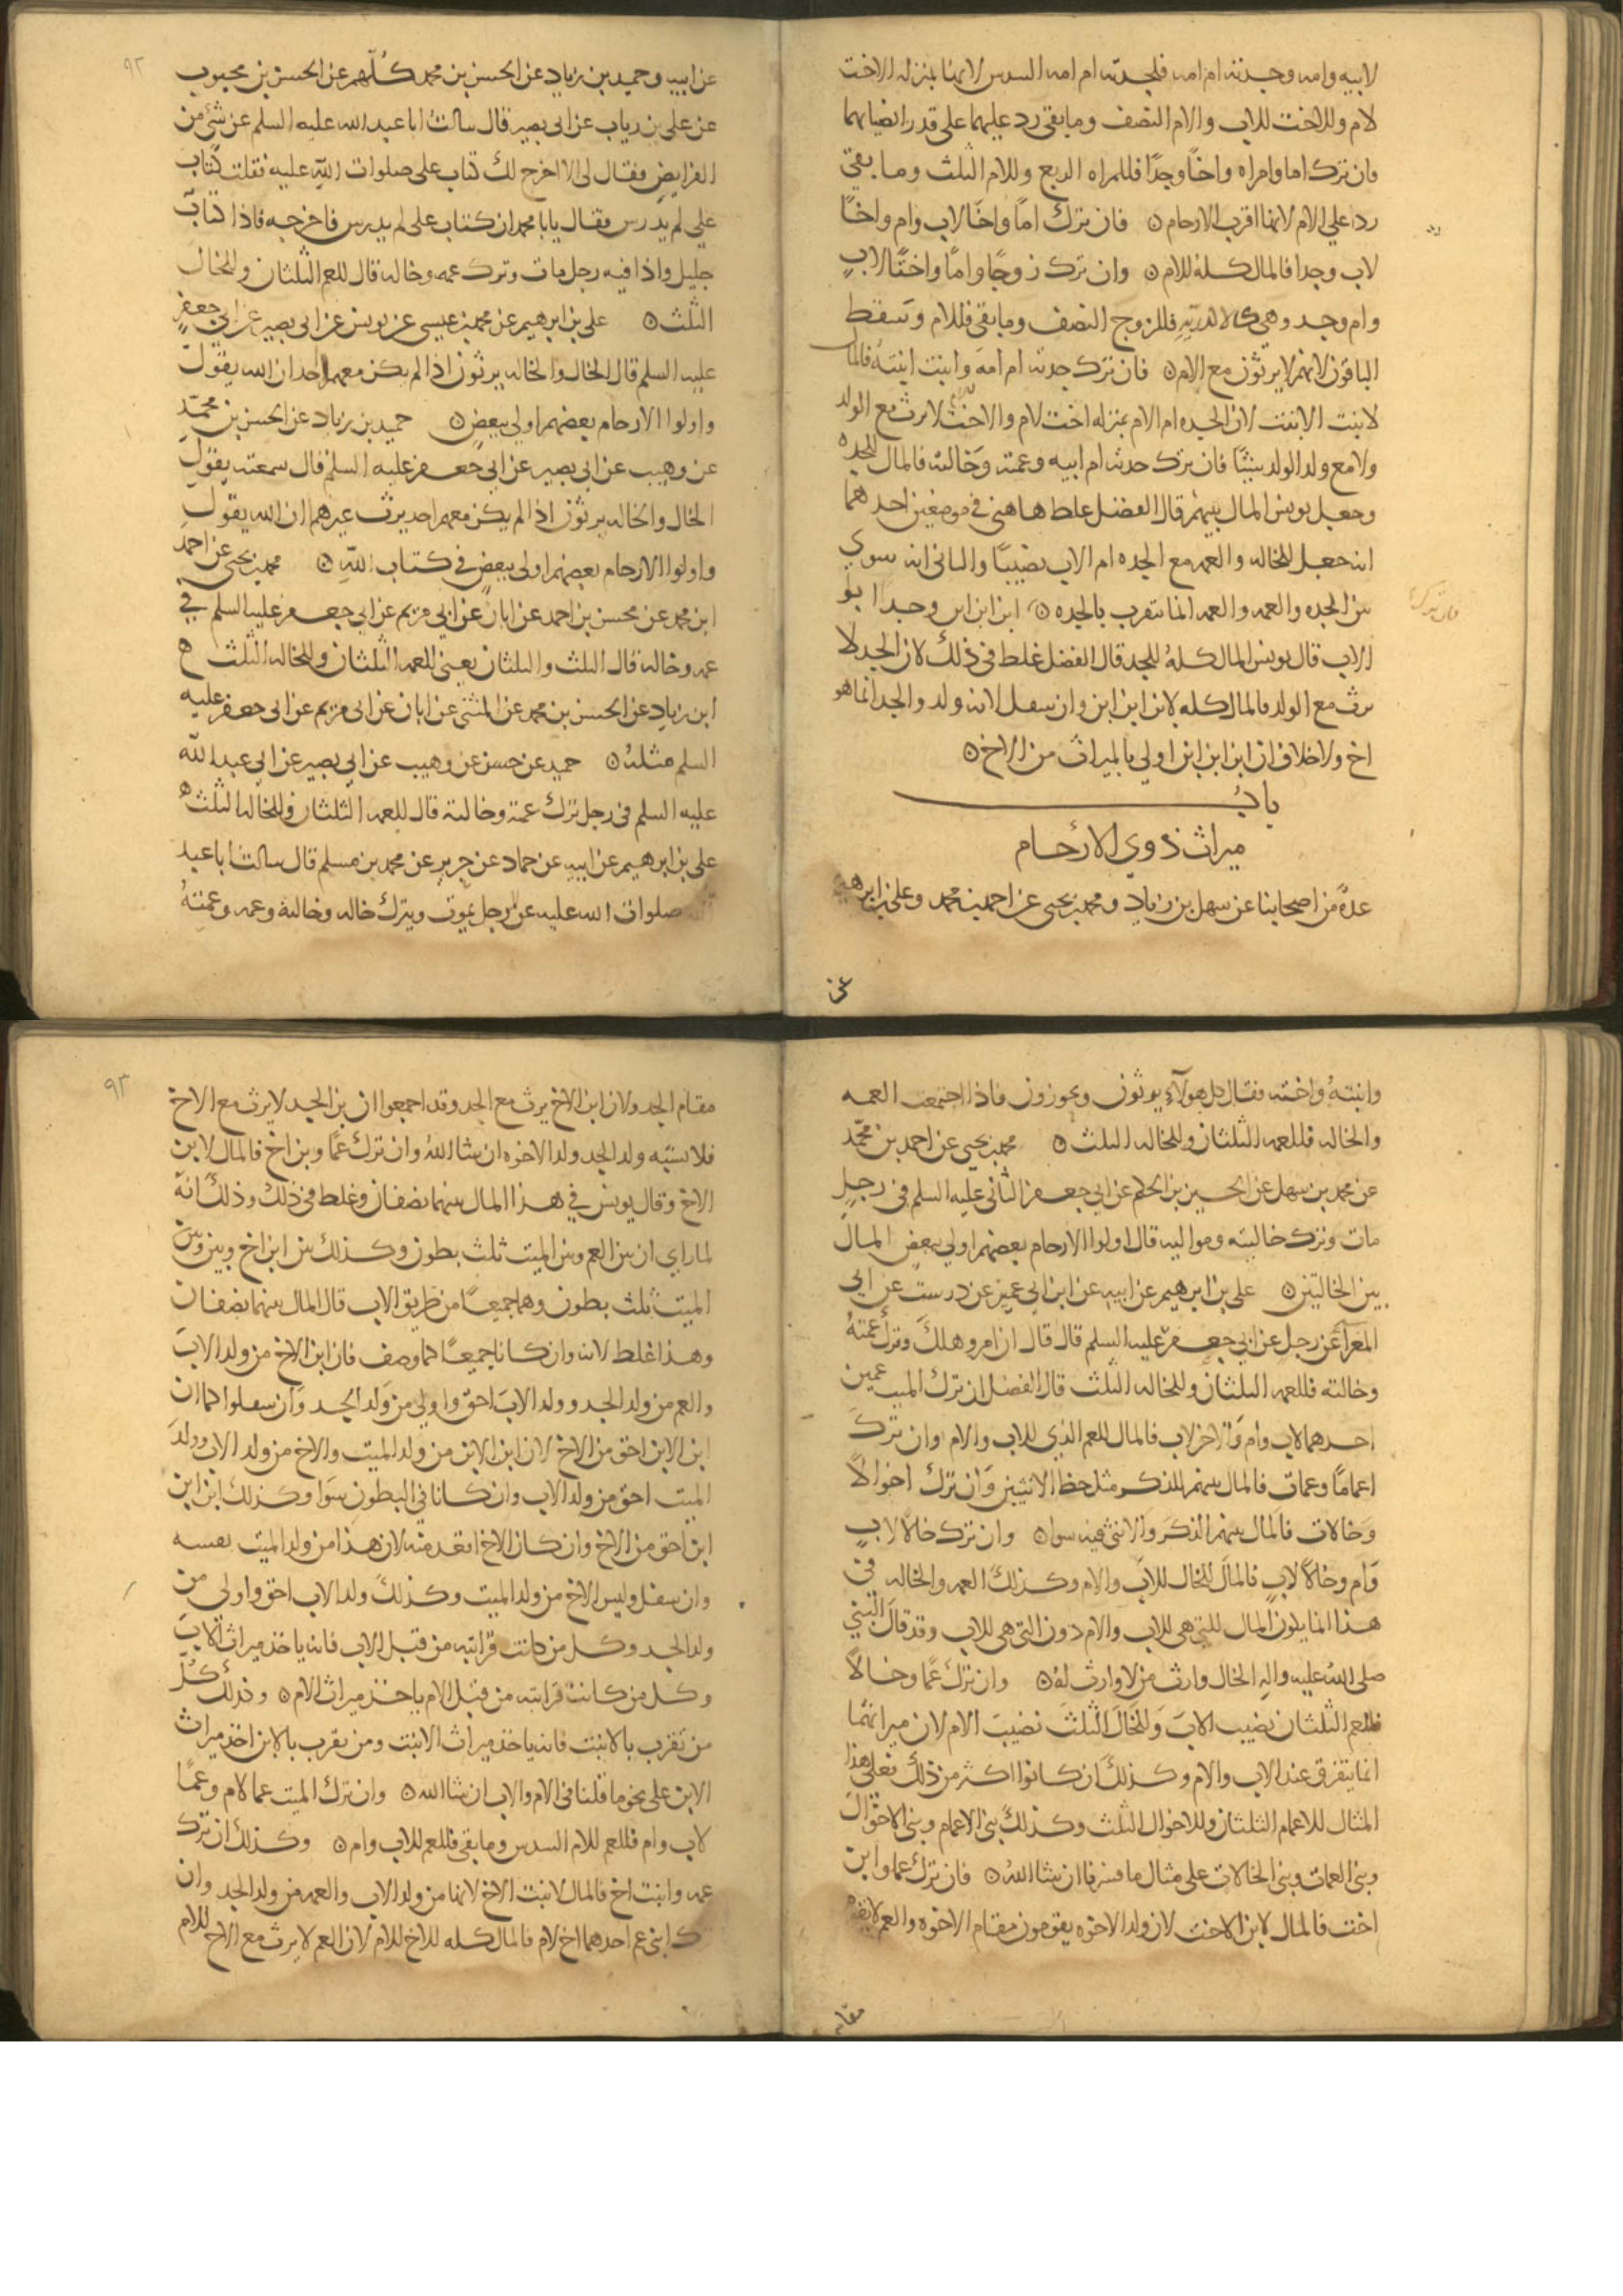 لابيه وامه وجدته ام امه فلجدته ام امه السدس لانها بمنزله الاخت
لام وللاخت للاب والام النصف ومابقى رد عليهما على قدر انصبائهما
فان ترك اما وامراه واخًا وجدًا فللمراه الربع وللام الثلث ومابقى
رد على الام لانها اقرب الارحام ن فان ترك امًا واخًا لاب وام واخًا
لاب وجدا فالمال كله للام ن وان ترك زوجًا وامًا واختًا لابٍ
وام وجد وهى الاكدريه فللزوج النصف ومابقى فللام وتسقط
الباقون لانهم لا يرثون مع الام ن فان ترك جدته ام امه وابنت ابنته فالمال
لابنت الابنت لان الجده ام الام بمنزله اخت لام والاخت لا يرث مع الولد
ولا مع ولد الولد شيئًا فان ترك جدته ام ابيه وعمته وخالته فالمال للجده
وجعل يونس المال بينهم قال الفضل غلط هاهنى فى موضعين احدهما
انه جعل للخاله والعمه مع الجده ام الاب نصيبًا والثانى انه سوى
بين الجده والعمه والعمه انما تتقرب بالجده ن ابن ابن ابن وجد ابو
فان ترك
الاب قال يونس المال كله للجد قال الفضل غلط فى ذلك لان الجد لا
يرث مع الولد فالمال كله لابن ابن ابن وان سفل لانه ولد والجد انما هو
اخ ولا خلاف ان ابن ابن ابن اولى بالميراث من الاخ ن
باب
ميراث ذوي الأرحام
عدة من اصحابنا عن سهل بن زياد ومحمد بن يحيى عن احمد بن محمد وعلى بن ابرهيم
عن
٩٢
عن ابيه وحميد بن زياد عن الحسن بن محمد كلهم عن الحسن بن محبوب
عن على بن رياب عن ابى بصير قال سالت ابا عبد الله عليه السلم عن شئ من
الفرايض فقال لى الا اخرج لك كتاب على صلوات الله عليه فقلت كتاب
علي لم يدرس فقال يابا محمد ان كتاب على لم يدرس فاخرجه فاذا كتاب
جليل واذا فيه رجل مات وترك عمه وخاله قال للعم الثلثان وللخال
الثلث ن على بن ابرهيم عن محمد بن عيسى عن يونس عن ابى بصير عن ابى جعفر
عليه السلم قال الخال والخاله يرثون اذا لم يكن معهما احد ان الله يقول
واولوا الارحام بعضهم اولى ببعض ن حميد بن زياد عن الحسن بن محمّد
عن وهيب عن ابى بصير عن ابى جعفر عليه السلم قال سمعته يقول
الخال والخاله يرثون اذا لم يكن معهم احد يرث غيرهم ان الله يقول
واولوا الارحام بعضهم اولى ببعض فى كتاب الله ن محمد بن يحيى عن احمد
ابن محمد عن محسن بن احمد عن ابان عن ابى مريم عن ابى جعفر عليه السلم فى
عمه وخاله قال الثلث والثلثان يعنى للعمه الثلثان وللخاله الثلث ح
ابن زياد عن الحسن بن محمد عن المثنى عن ابان عن ابى مريم عن ابى جعفر عليه
السلم مثله ن حميد عن حسن عن وهيب عن ابى بصير عن ابى عبد الله
عليه السلم فى رجل ترك عمته وخالته قال للعمه الثلثان وللخاله الثلث ه
على بن ابرهيم عن ابيه عن حماد عن حريز عن محمد بن مسلم قال سالت ابا عبد
الله صلوات الله عليه عن رجل يموت ويترك خاله وخالته وعمه وعمته
وابنته واخته فقال كل هولآء يرثون ويحوزون فاذا اجتمعت العمه
والخاله فللعمه الثلثان وللخاله الثلث ن محمد بن يحيى عن احمد بن محمّد
عن محمد بن سهل عن الحسين بن الحكم عن ابى جعفر الثانى عليه السلم فى رجلٍ
مات وترك خالتيه ومواليه قال اولوا الارحام بعضهم اولى ببعض المال
بين الخالتين ن على بن ابرهيم عن ابيه عن ابن ابى عمير عن درست عن ابى
المعزا عن رجل عن ابى جعفر عليه السلم قال قال ان امرو هلك وترك عمته
وخالته فللعمه الثلثان وللخاله الثلث قال الفضل ان ترك الميت عمين
احدهما لاب وام والاخر لاب فالمال للعم الذي للاب والام وان ترك
اعمامًا وعمات فالمال بينهم للذكر مثل حظ الانثيين وان ترك اخوالًا
وخالات فالمال بينهم الذكر والانثى فيه سوا ن وان ترك خالًا لابٍ
وام وخالًا لابٍ فالمال للخال للاب والام وكذلك العمه والخاله فى
هذا انما يكون المال للتى هى للاب والام دون التى هى للاب وقد قال النبي
صلى الله عليه واله الخال وارث من لا وارث له ن وان ترك عمًا وخالًا
فللعم الثلثان نصيب الاب وللخال الثلث نصيب الام لان ميراثهما
انما يتفرق عند الاب والام وكذلك ان كانوا اكثر من ذلك فعلى هذا
المثال للاعمام الثلثان وللاخوال الثلث وكذلك بنى الاعمام وبنى الاخوال
وبنى العمات وبنى الخالات على مثال ما فسرنا ان شا الله ن فان ترك عما وابن
اخت فالمال لابن الاخت لان ولد الاخوه يقومون مقام الاخوه والعم لا يقوم
مقام
٩٣
مقام الجد ولان ابن الاخ يرث مع الجد وقد اجمعوا ان بن الجد لا يرث مع الاخ
فلا يشبه ولد الجد ولد الاخوه ان شا الله وان ترك عمًا وبن اخ فالمال لابن
الاخ وقال يونس في هذا المال بينهما نصفان وغلط فى ذلك وذلك انه
لما راى ان بين العم وبين الميت ثلث بطون وكذلك بين ابن اخ وبين
الميت ثلث بطون وهما جميعًا من طريق الاب قال المال بينهما نصفان
وهذا غلط لانه وان كانا جميعًا كما وصف فان ابن الاخ من ولد الاب
والعم من ولد الجد وولد الاب احق واولى من ولد الجد وان سفلوا كما ان
ابن الابن احق من الاخ لان ابن الابن من ولد الميت والاخ من ولد الاب وولد
الميت احق من ولد الاب وان كانا في البطون سوا وكذلك ابن ابن
ابن احق من الاخ وان كان الاخ اقعد منه لان هذا من ولد الميت نفسه
وان سفل وليس الاخ من ولد الميت وكذلك ولد الاب احق واولى من
ولد الجد وكل من كانت قرابته من قبل الاب فانه ياخذ ميراث الاب
وكل من كانت قرابته من قبل الام ياخذ ميراث الام ن وكذلك كل
من تقرب بالابنت فانه ياخذ ميراث الابنت ومن تقرب بالابن اخذ ميراث
الابن على نحو ما قلنا فى الام والاب ان شا الله ن وان ترك الميت عما لام وعمًا
لاب وام فللعم للام السدس ومابقى فللعم للاب وام ن وكذلك ان ترك
عمه وابنت اخ فالمال لابنت الاخ لانها من ولد الاب والعمه من ولد الجد وان
ك ابنى عم احدهما اخ لام فالمال كله للاخ للام لان العم لا يرث مع الاخ للام